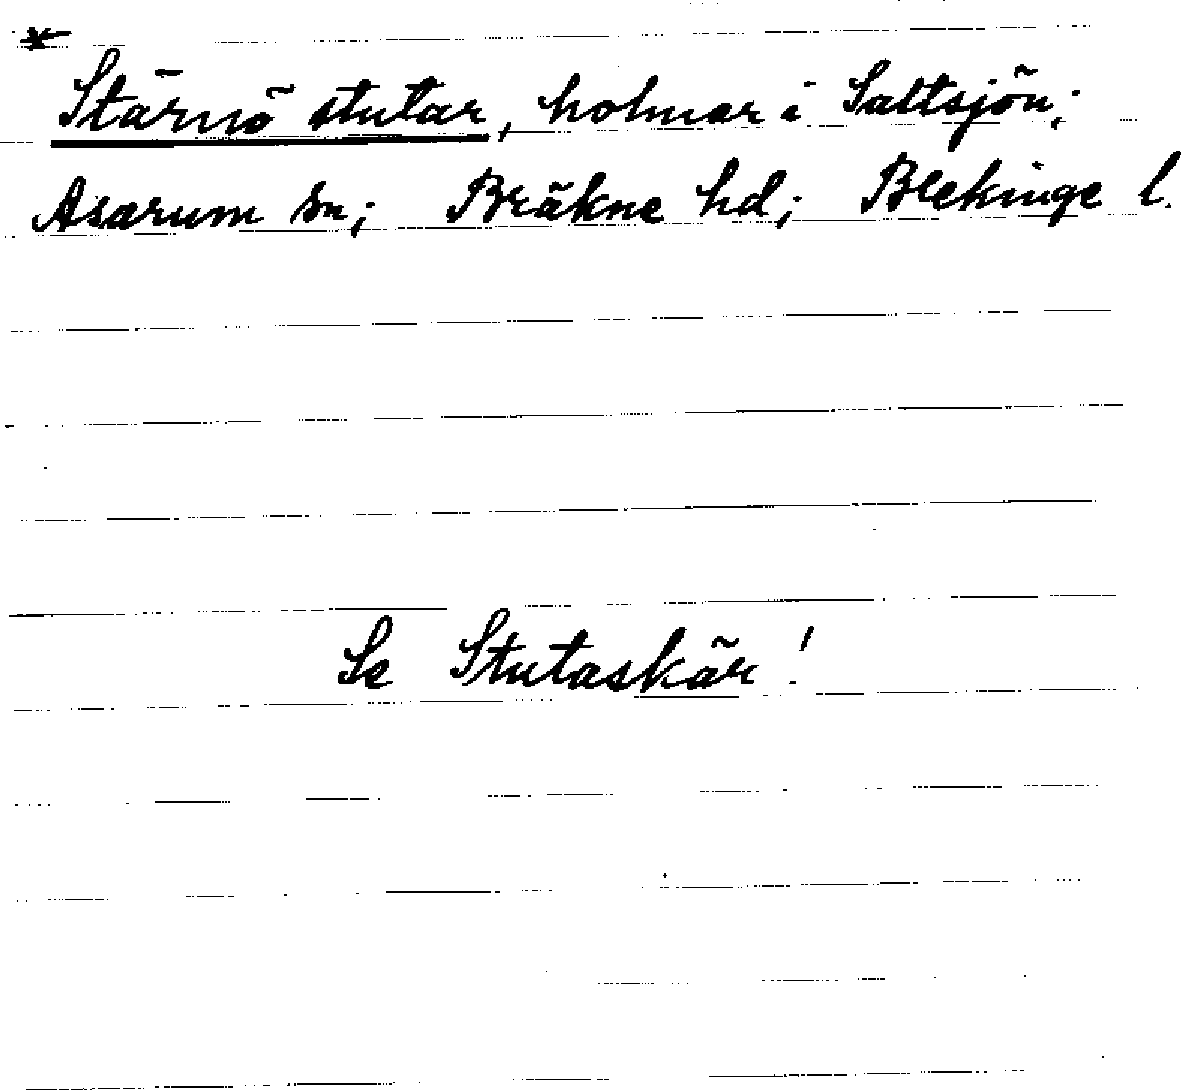 Stärnö stutar, holmar i Saltsjön;
Asarum sn; Bräkne hd; Blekinge l.
Se Stutaskär!